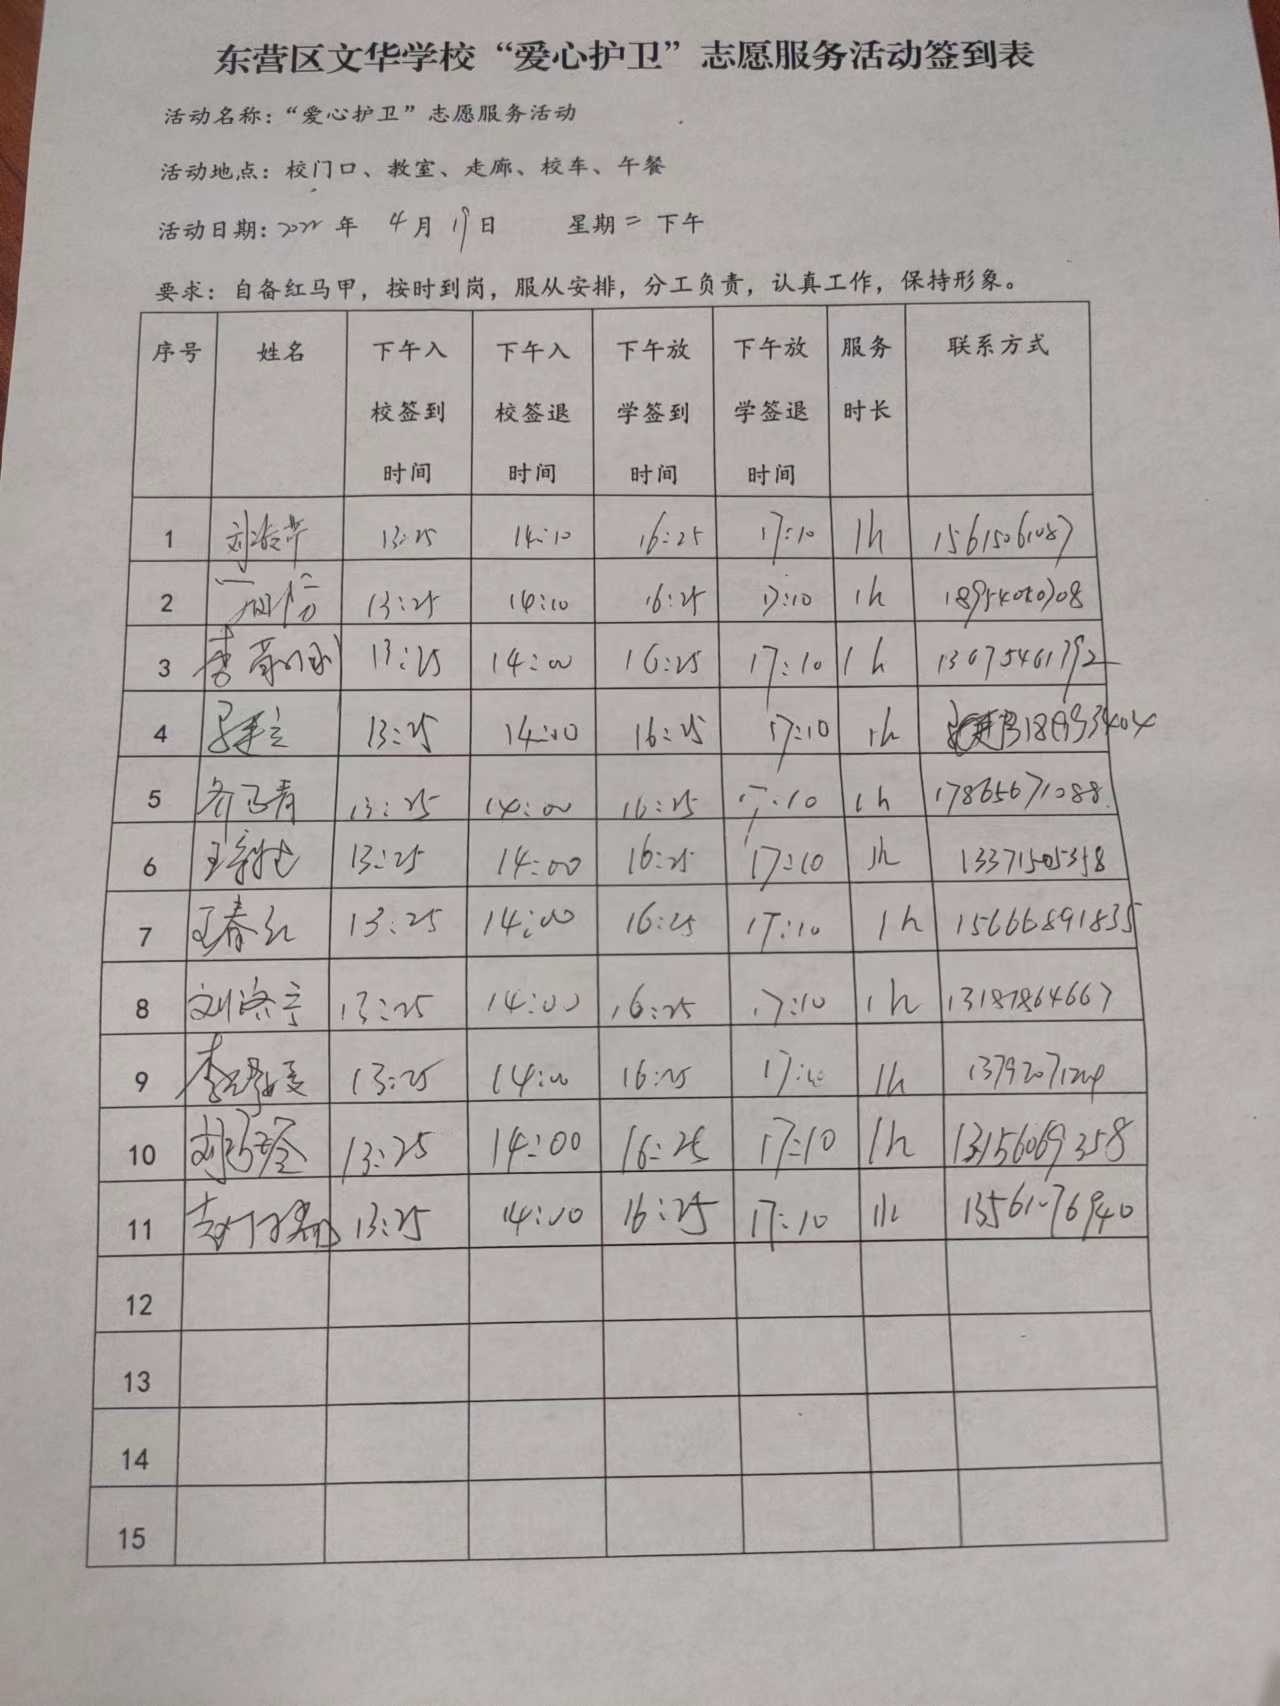 东营区文华学校“爱心护卫”志愿服务活动签到表
活动名称：“爱心护卫”志愿服务活动
活动地点：校门口、教室、走廊、校车、午餐
活动日期：2022 年 4 月 19 日 星期二 下午
要求：自备红马甲，按时到岗，服从安排，分工负责，认真工作，保持形象。
序号 姓名 下午入校签到时间 下午入校签退时间 下午放学签到时间 下午放学签退时间 服务时长 联系方式
1 13:25 14:10 16:25 17:10 1h 15615061087
2 13:25 14:10 16:25 17:10 1h
3 13:25 14:00 16:25 17:10 1h 13675461792
4 13:25 14:00 16:25 17:10 1h
5 13:25 14:00 16:25 17:10 1h 17865671088
6 13:25 14:00 16:25 17:10 1h 13371505358
7 王春红 13:25 14:00 16:25 17:10 1h 15666891835
8 13:25 14:00 16:25 17:10 1h 13187864667
9 13:25 14:00 16:25 1h
10 13:25 14:00 16:25 17:10 1h 13156069358
11 13:25 14:00 16:25 17:10 1h
12
13
14
15